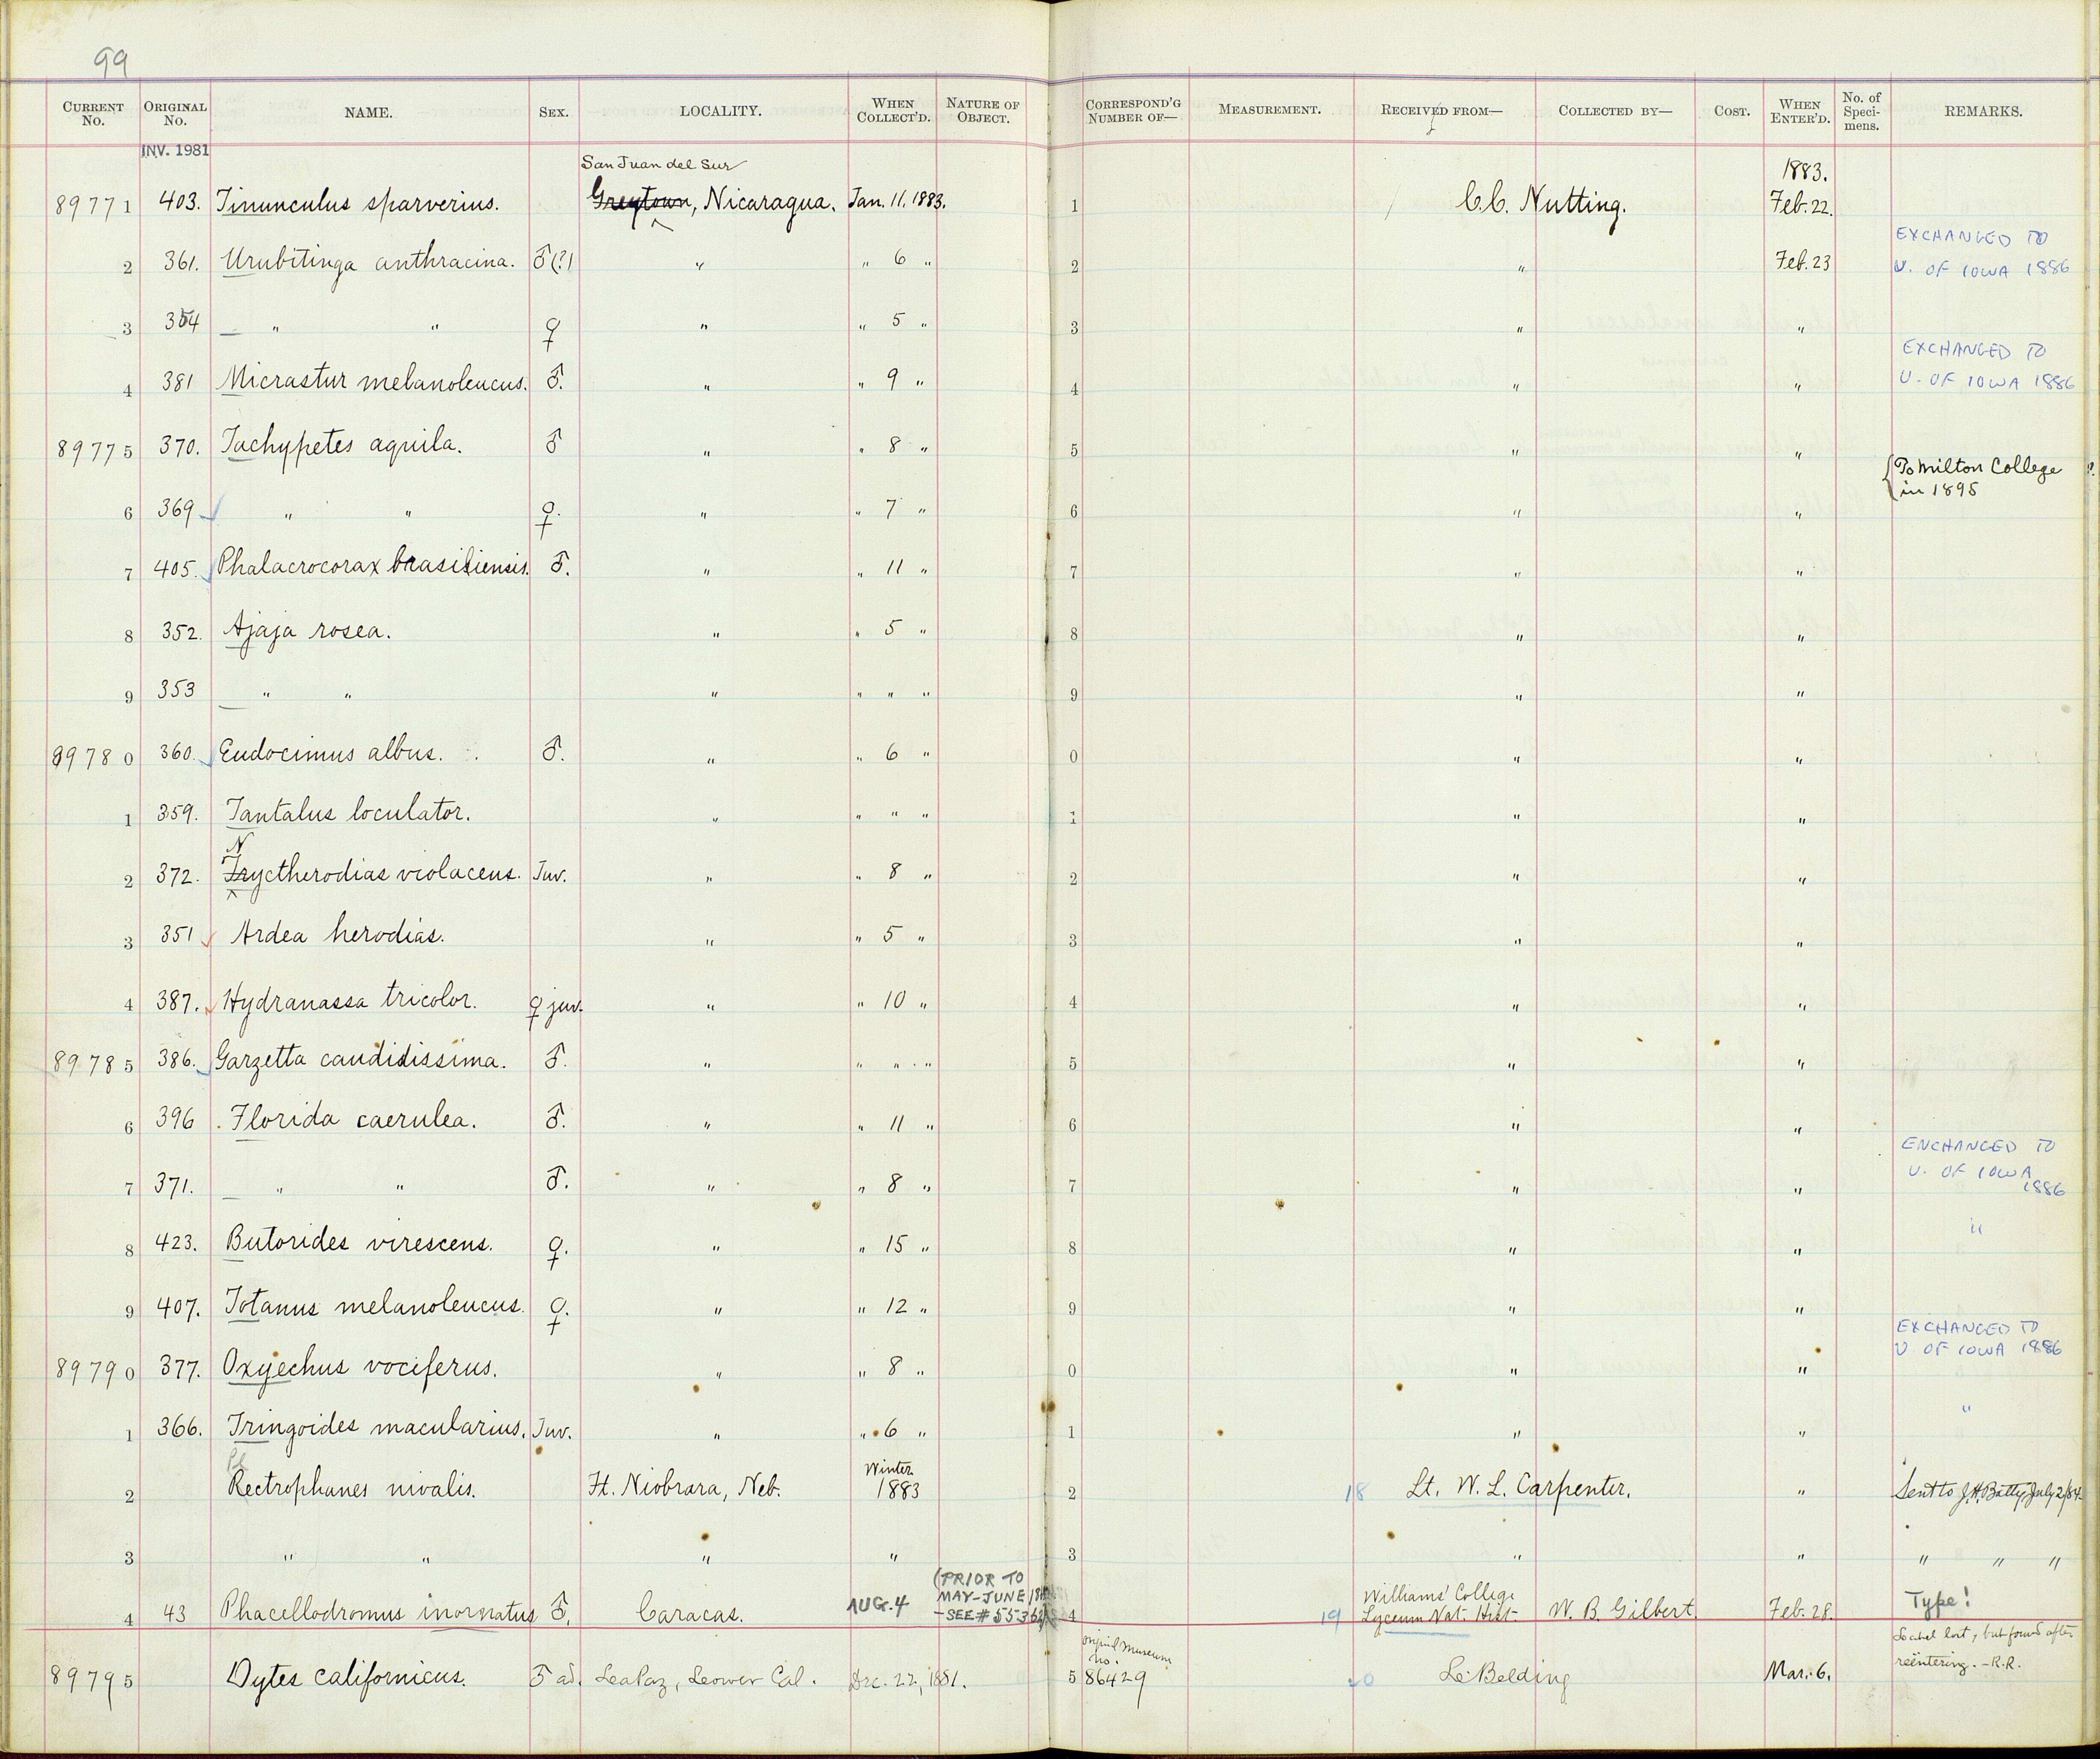 99
CURRENT No. ORIGINAL No. NAME. SEX. LOCALITY. WHEN COLLECT'D. NATURE OF OBJECT. CORRESPOND'G NUMBER OF— MEASUREMENT. RECEIVED FROM— COLLECTED BY— COST. WHEN ENTER'D. No. of Specimens. REMARKS.
INV. 1981
San Juan del Sur 1883.
89771 403. Tinunculus sparverius. Greytown, Nicaragua. Jan. 11, 1883. 1 C.C. Nutting. Feb. 22.
EXCHANGED TO
2 361. Urubitinga anthracina. ♂(?) " " 6 " 2 " Feb. 23 U. OF IOWA 1886
3 354 " " ♀ " " 5 " 3 " "
EXCHANGED TO
4 381 Micrastur melanoleucus. ♂. " " 9 " 4 " " U. OF IOWA 1886
89775 370. Tachypetes aquila. ♂ " " 8 " 5 " "
{To Milton College ?
in 1895
6 369 " " ♀. " " 7 " 6 " "
7 405. Phalacrocorax brasiliensis. ♂. " " 11 " 7 " "
8 352. Ajaja rosea. " " 5 " 8 " "
9 353 " " " " " " 9 " "
89780 360. Eudocimus albus. ♂. " " 6 " 0 " "
1 359. Tantalus loculator. " " " " 1 " "
N
2 372. Tryctherodias violaceus. Juv. " " 8 " 2 " "
3 351 Ardea herodias. " " 5 " 3 " "
4 387. Hydranassa tricolor. ♀ juv. " " 10 " 4 " "
89785 386. Garzetta candidissima. ♂. " " " " 5 " "
6 396 Florida caerulea. ♂. " " 11 " 6 " "
ENCHANGED TO
U. OF IOWA
7 371. " " ♂. " " 8 " 7 " " 1886
8 423. Butorides virescens. ♀. " " 15 " 8 " " "
9 407. Totanus melanoleucus. ♀. " " 12 " 9 " "
EXCHANGED TO
U OF IOWA 1886
89790 377. Oxyechus vociferus. " " 8 " 0 " "
1 366. Tringoides macularius. Juv. " " 6 " 1 " " "
Pl Winter
2 Rectrophanes nivalis. Ft. Niobrara, Neb. 1883 2 18 Lt. W. L. Carpenter. " Sent to J.H. Batty, July 2/84
3 " " " " 3 " " " " "
(PRIOR TO
MAY-JUNE
-SEE # 55362)
Williams' College
4 43 Phacellodromus inornatus ♂. Caracas. AUG. 4 4 19 Lyceum Nat. Hist. W. B. Gilbert. Feb. 28. Type!
original Museum no. Label lost, but found after
reëntering. - R.R.
89795 Dytes californicus. ♂ ad. La Paz, Lower Cal. Dec. 22, 1881. 5 86429 20 L. Belding Mar. 6.